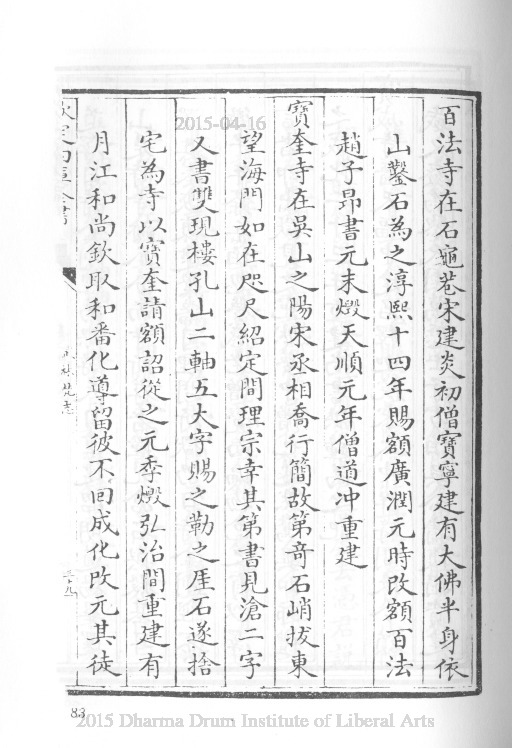 百法寺在石龜巷宋建炎初僧寶寧建有大佛半身依
山鑿石為之淳熙十四年賜額廣潤元時改額百法
趙子昂書元末燬天順元年僧道冲重建
寶奎寺在吳山之陽宋丞相喬行簡故第竒石峭拔東
望海門如在咫尺紹定間理宗幸其第書見滄二字
又書雙現樓孔山二軸五大字賜之勒之厓石遂捨
宅為寺以寶奎請額詔從之元季燬弘治間重建有
月江和尚欽取和番化導留彼不回成化改元其徒
欽定四庫全書
三十九
83
2015-04-16
2015 Dharma Drum Institute of Liberal Arts